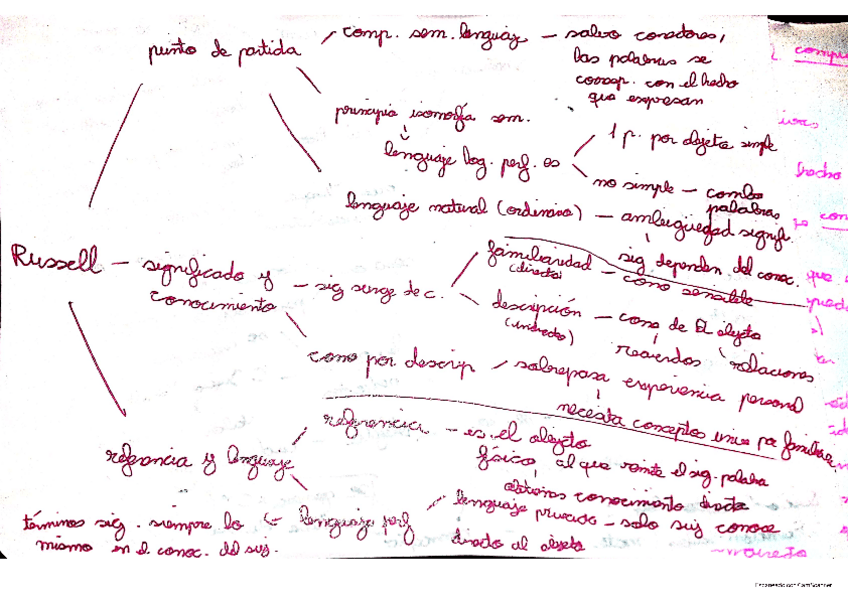 punto de partida
comp. sem. lenguaje - salvo conectores,
las palabras se
corresp. con el hecho
que expresan
principio isomorfía sem.
lenguaje log. perf. es
1 p. por objeto simple
no simple - combo
palabras
lenguaje natural (ordinario) - ambigüedad signifi.
sig. dependen del conoc.
Russell - significado y
conocimiento
- sig surge de c.
familiaridad - cono sensible
(directo)
descripción - cono de El objeto
(indirecto)
recuerdos
relaciones
cono por descrip
sobrepasa experiencia personal
necesita conceptos
referencia y lenguaje
referencia - es el objeto
físico, al que remite el sig. palabra
conocimiento directo
lenguaje perf
lenguaje privado - solo suj conoce
directo al objeto
términos sig. siempre lo
mismo en el conoc. del suj.
hecho
que
Escaneado con CamScanner